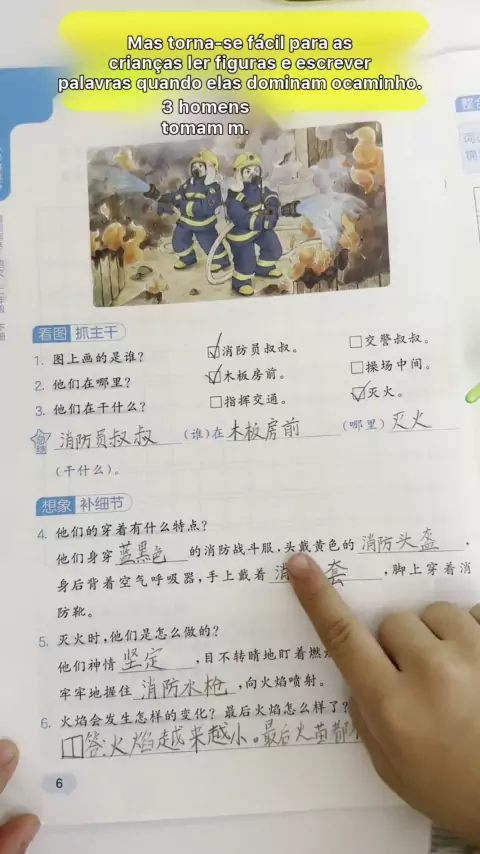 Mas torna-se fácil para as
crianças ler figuras e escrever
palavras quando elas dominam ocaminho.
3 homens
tomam m.
整合
看图 抓主干
1. 图上画的是谁? ☑消防员叔叔。 □交警叔叔。
2. 他们在哪里? ☑木板房前。 □操场中间。
3. 他们在干什么? □指挥交通。 ☑灭火。
总结 消防员叔叔 (谁)在 木板房前 (哪里) 灭火
(干什么)。
想象 补细节
4. 他们的穿着有什么特点?
他们身穿 蓝黑色 的消防战斗服,头戴黄色的 消防头盔 ,
身后背着空气呼吸器,手上戴着 消 套 ,脚上穿着消
防靴。
5. 灭火时,他们是怎么做的?
他们神情 坚定 ,目不转睛地盯着燃
牢牢地握住 消防水枪 ,向火焰喷射。
6. 火焰会发生怎样的变化? 最后火焰怎么样了?
答:火焰越来越小。最后火苗都
6